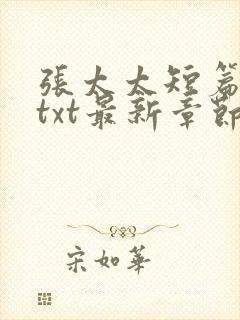 張太太短篇
txt最新章節
宋如華